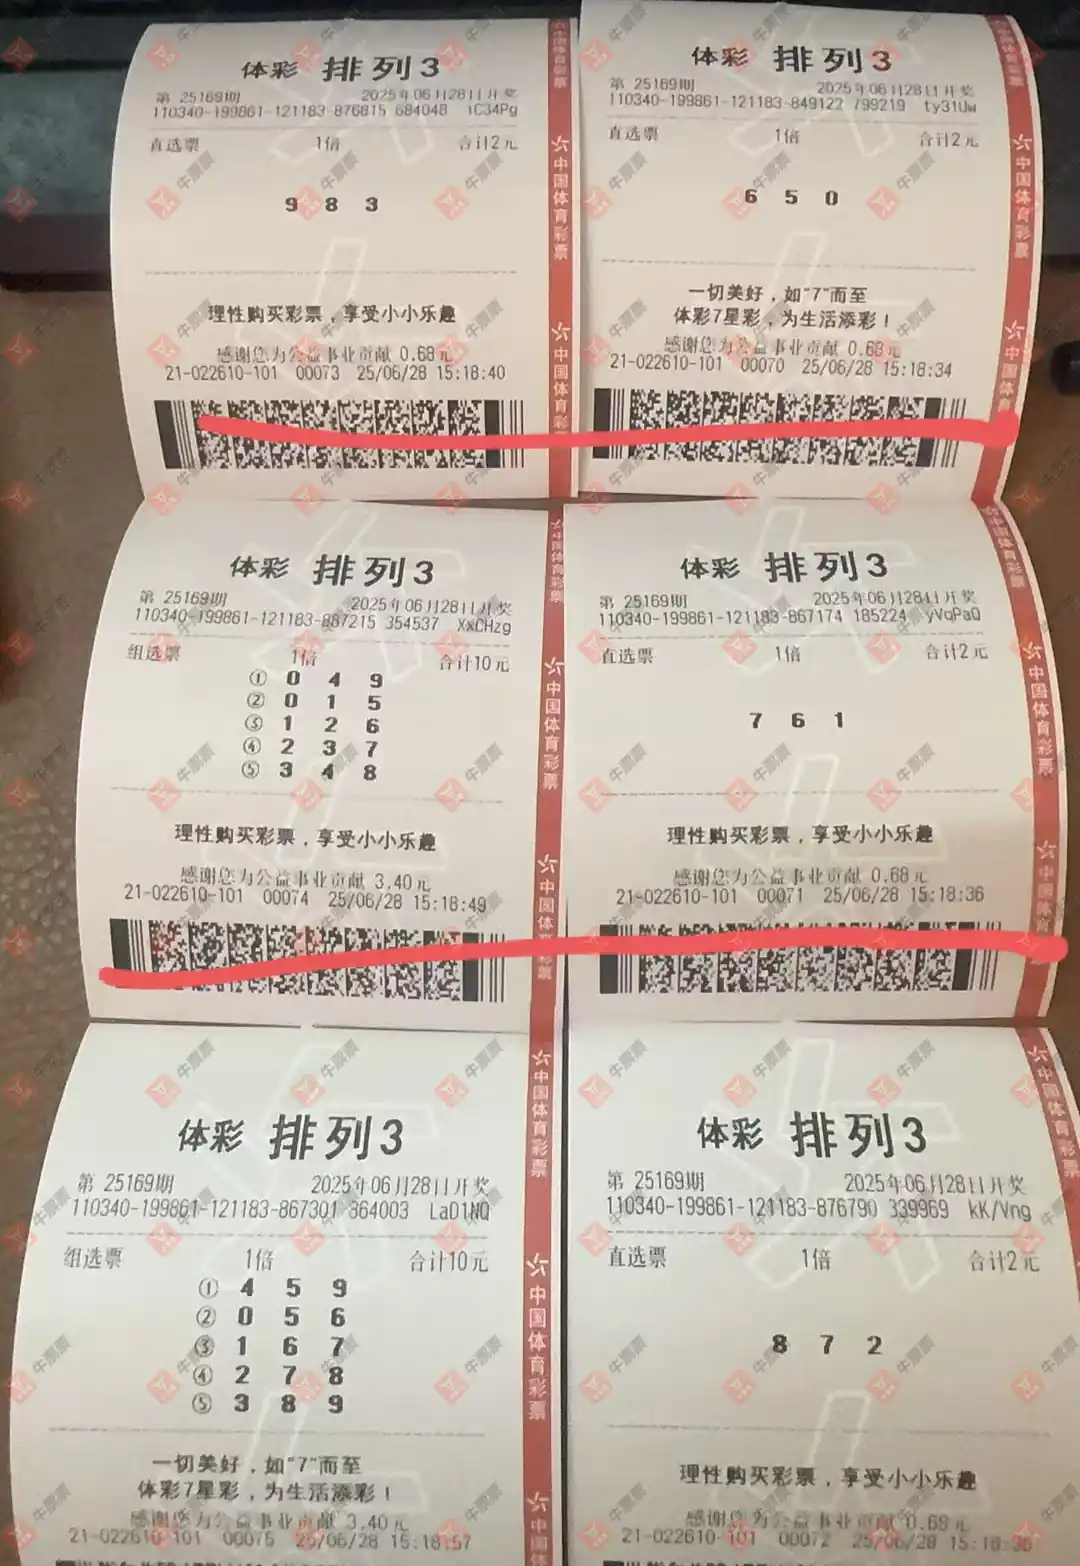 体彩 排列3
第 25169期 2025年06月28日开奖
110340-199861-121183-876815 684048 iC34Pg
直选票 1倍 合计2元
9 8 3
理性购买彩票，享受小小乐趣
感谢您为公益事业贡献 0.68元
21-022610-101 00073 25/06/28 15:18:40
中国体育彩票
体彩 排列3
第 25169期 2025年06月28日开奖
110340-199861-121183-849122 799219 ty31Uw
直选票 1倍 合计2元
6 5 0
一切美好，如“7”而至
体彩7星彩，为生活添彩！
感谢您为公益事业贡献 0.68元
21-022610-101 00070 25/06/28 15:18:34
中国体育彩票
体彩 排列3
第 25169期 2025年06月28日开奖
110340-199861-121183-887215 354537 XxCHzg
组选票 1倍 合计10元
① 0 4 9
② 0 1 5
③ 1 2 6
④ 2 3 7
⑤ 3 4 8
理性购买彩票，享受小小乐趣
感谢您为公益事业贡献 3.40元
21-022610-101 00074 25/06/28 15:18:49
中国体育彩票
体彩 排列3
第 25169期 2025年06月28日开奖
110340-199861-121183-867174 185224 yVqPaQ
直选票 1倍 合计2元
7 6 1
理性购买彩票，享受小小乐趣
感谢您为公益事业贡献 0.68元
21-022610-101 00071 25/06/28 15:18:36
中国体育彩票
体彩 排列3
第 25169期 2025年06月28日开奖
110340-199861-121183-867301 364003 LaD1NQ
组选票 1倍 合计10元
① 4 5 9
② 0 5 6
③ 1 6 7
④ 2 7 8
⑤ 3 8 9
一切美好，如“7”而至
体彩7星彩，为生活添彩！
感谢您为公益事业贡献 3.40元
21-022610-101 00075 25/06/28 15:18:57
中国体育彩票
体彩 排列3
第 25169期 2025年06月28日开奖
110340-199861-121183-876790 339969 kK/Vng
直选票 1倍 合计2元
8 7 2
理性购买彩票，享受小小乐趣
感谢您为公益事业贡献 0.68元
21-022610-101 00072 25/06/28
中国体育彩票
牛票票